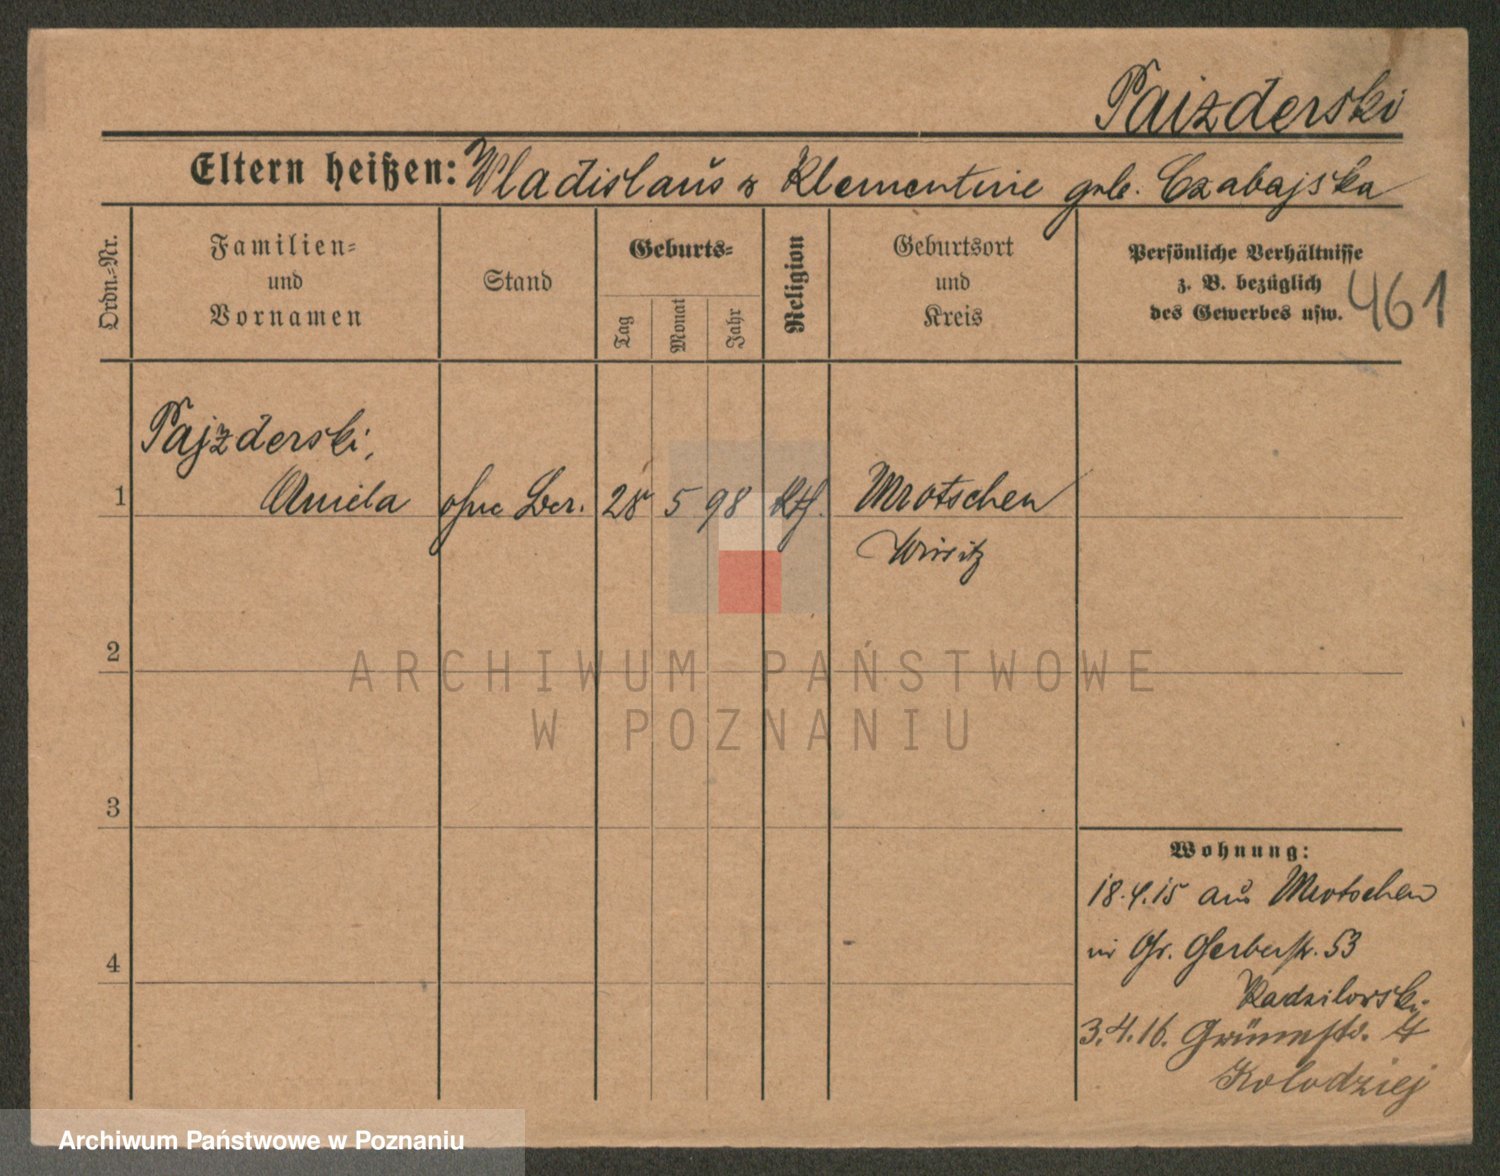 Paizderski
Eltern heißen: Wladislaus & Klementine geb. Czabajska
Ordn.-Nr.
Familien-
und
Vornamen
Stand
Geburts-
Tag
Monat
Jahr
Religion
Geburtsort
und
Kreis
Persönliche Verhältnisse
z. B. bezüglich
des Gewerbes usw.
461
Pajzderski,
1 Aniela ohne Ber. 28 5 98 kth. Mrotschen
Wirsitz
2
ARCHIWUM PAŃSTWOWE
W POZNANIU
3
Wohnung:
18.4.15 aus Mrotschen
in Gr. Gerberstr. 53
4
Radzilowski
3.4.16. Grünestr. 4
Kolodziej
Archiwum Państwowe w Poznaniu